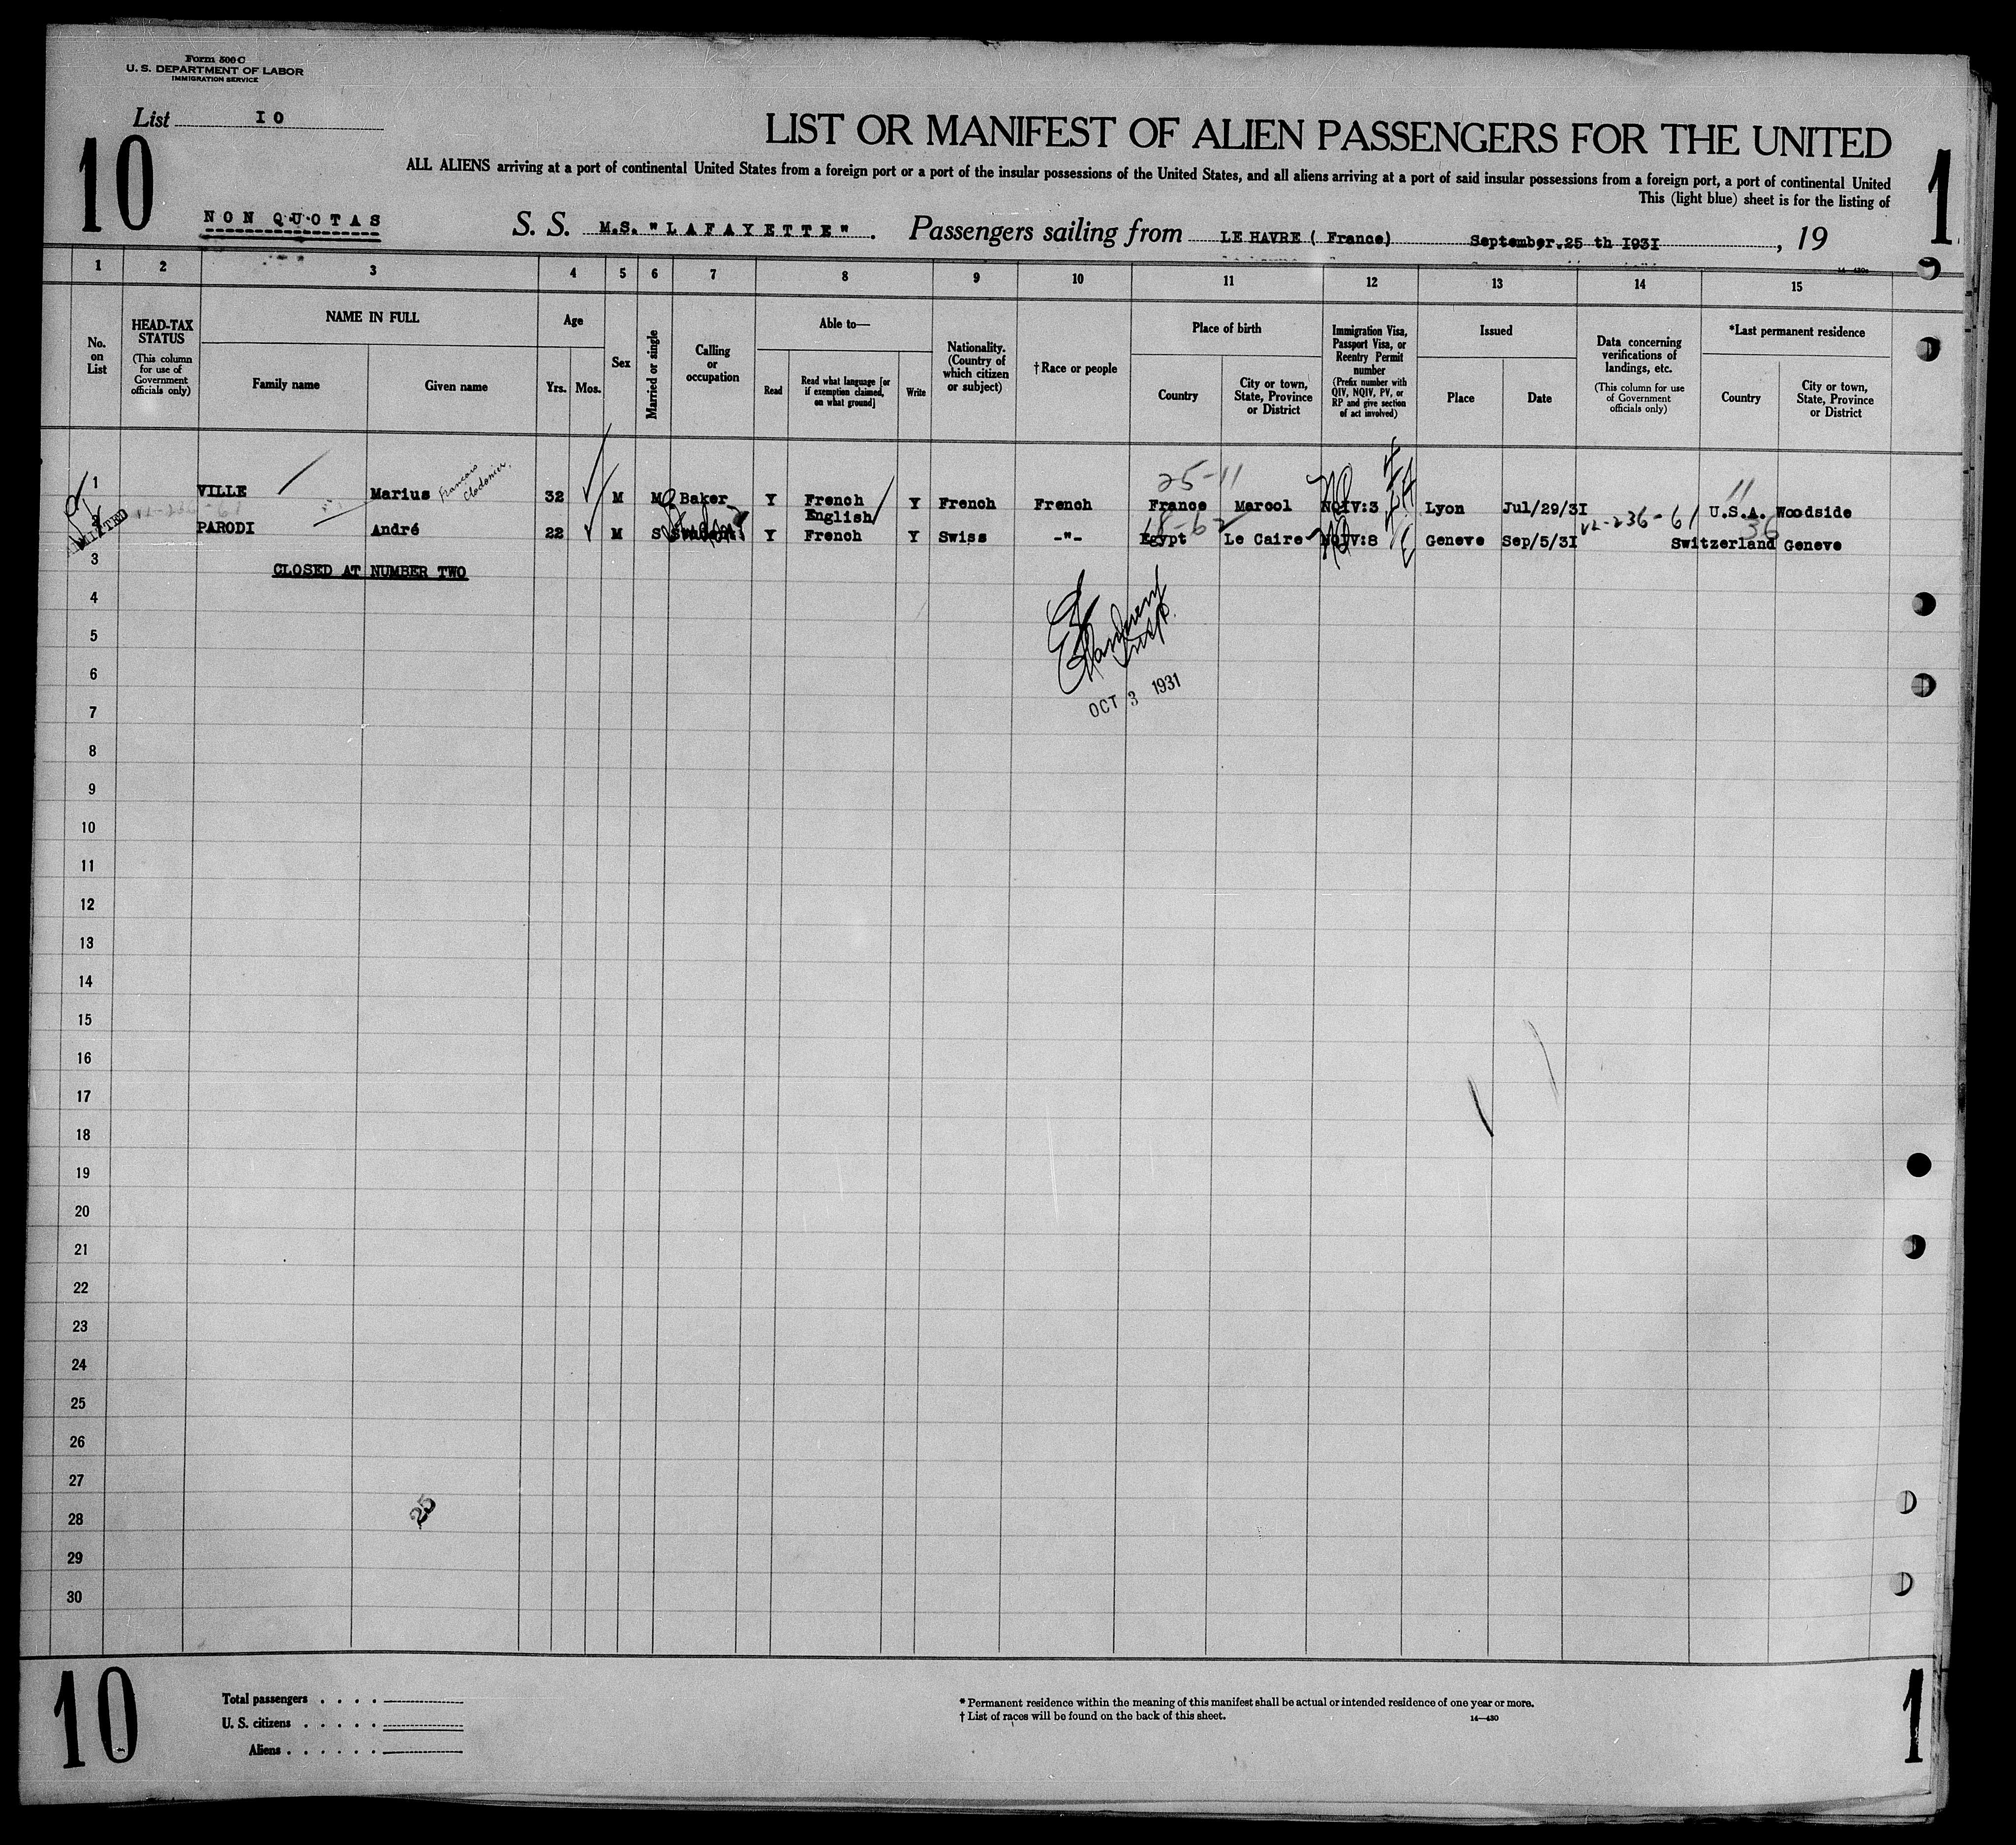 Form 500 C
U. S. DEPARTMENT OF LABOR
IMMIGRATION SERVICE
List IO
10
LIST OR MANIFEST OF ALIEN PASSENGERS FOR THE UNITED
1
ALL ALIENS arriving at a port of continental United States from a foreign port or a port of the insular possessions of the United States, and all aliens arriving at a port of said insular possessions from a foreign port, a port of continental United
This (light blue) sheet is for the listing of
NON QUOTAS
S. S. M.S. "LAFAYETTE". Passengers sailing from LE HAVRE ( France) September.25 th I93I, 19
1 2 3 4 5 6 7 8 9 10 11 12 13 14 15
No. on List
HEAD-TAX STATUS
(This column for use of Government officials only)
NAME IN FULL
Family name Given name
Age
Yrs. Mos.
Sex
Married or single
Calling or occupation
Able to—
Read
Read what language [or if exemption claimed, on what ground]
Write
Nationality. (Country of which citizen or subject)
† Race or people
Place of birth
Country City or town, State, Province or District
Immigration Visa, Passport Visa, or Reentry Permit number
(Prefix number with QIV, NQIV, PV, or RP and give section of act involved)
Issued
Place Date
Data concerning verifications of landings, etc.
(This column for use of Government officials only)
*Last permanent residence
Country City or town, State, Province or District
25-11 11
1 VILLE Marius Francois Clodomier 32 M M Baker Y French Y French French France Marcol NQIV:3 Lyon Jul/29/3I U.S.A. Woodside
English
18-62 VL-236-61 36
2 PARODI André 22 M S Student Y French Y Swiss -"- Egypt Le Caire NQIV:8 Geneve Sep/5/3I Switzerland Geneve
ADMITTED
3 CLOSED AT NUMBER TWO
4
5
Insp.
6
OCT 3 1931
7
8
9
10
11
12
13
14
15
16
17
18
19
20
21
22
23
24
25
26
27
28
29
30
10
Total passengers
U. S. citizens
Aliens
* Permanent residence within the meaning of this manifest shall be actual or intended residence of one year or more.
† List of races will be found on the back of this sheet.
14—430
1